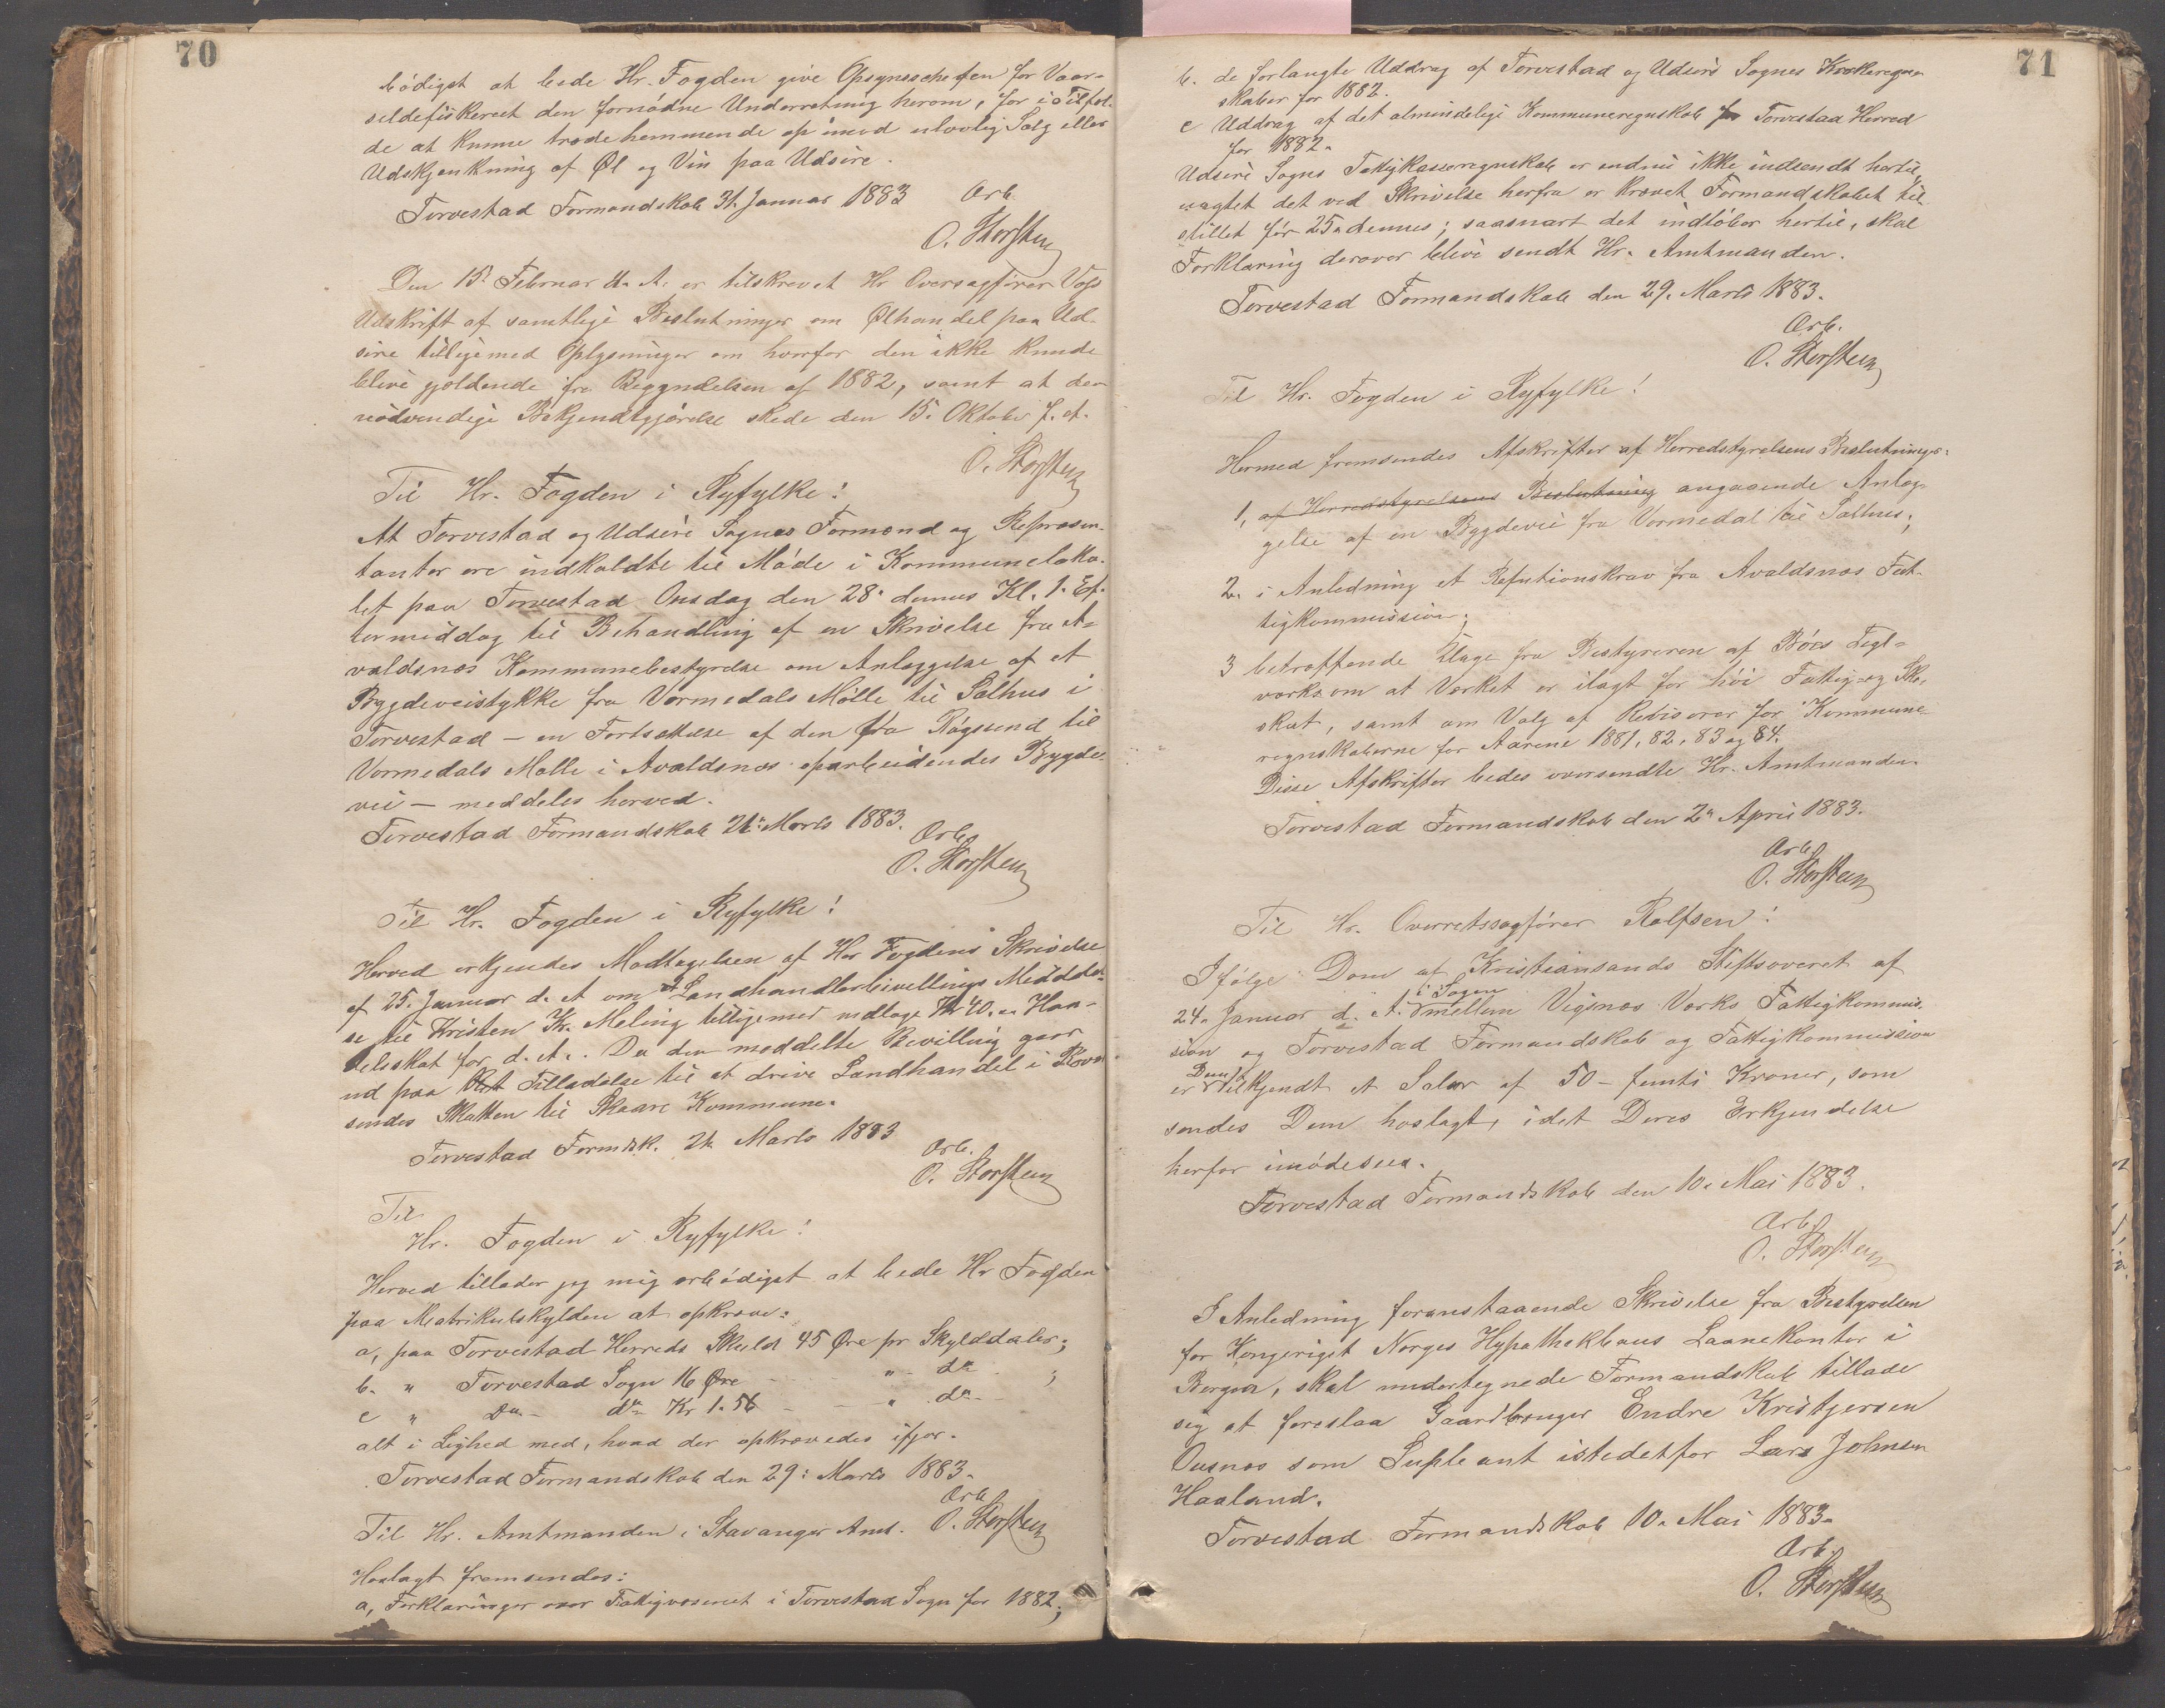 70
bödigst at bede Hr. Fogden give Opsynschefen for Vaar-
sildefiskeriet den fornödne Underretning herom, for i Tilfæl-
de at kunne træde hemmende op imod ulovlig Salg eller
Udskjænkning af Øl og Vin paa Udsire.
Torvestad Formandskab 31. Januar 1883
Ærb.
O. Storsten
Den 15. Februar d. A. er tilskrevet Hr Oversagfører Voss
Udskrift af samtlige Beslutninger om Ølhandel paa Ud-
sire tilligemed Oplysninger om hvorfor den ikke kunde
blive gjældende fra Begyndelsen af 1882, samt at den
nödvendige Bekjendtgjörelse skede den 15. Oktober f. A.
O. Storsten
Til Hr. Fogden i Ryfylke!
At Torvestad og Udsire Sognes Formænd og Repræsen-
tanter ere indkaldte til Möde i Kommuneloka-
let paa Torvestad Onsdag den 28. dennes Kl. 1. Ef-
termiddag til Behandling af en Skrivelse fra A-
valdsnæs Kommunebestyrelse om Anlæggelse af et
Bygdeveistykke fra Vormedals Mölle til Salhus i
Torvestad – en Fortsættelse af den fra Røgsund til
Vormedals Mølle i Avaldsnæs oparbeidendes Bygde-
vei – meddeles herved.
Torvestad Formandskab 21. Marts 1883.
Ærb.
O. Storsten
Til Hr. Fogden i Ryfylke!
Herved erkjendes Modtagelsen af Hr Fogdens Skrivelse
af 25. Januar d. A om Landhandlerbevillings Meddelel-
se til Kristen Kr. Meling tilligemed vedlagt Kr 40. Han-
delsskat for d. A. Da den meddelte Bevilling gaar
ud paa Tilladelse til at drive Landhandel i Røvær
sendes Skatten til Skaare Kommune.
Torvestad Formdsk. 21 Marts 1883
Ærb.
O. Storsten
Til
Hr. Fogden i Ryfylke!
Herved tillader jeg mig ærbödigst at bede Hr Fogden
paa Matrikulskylden at opkræve:
a, paa Torvestad Herreds Skyld 45 Øre pr Skylddaler;
b. " Torvestad Sogn 16 Øre - - " - do ;
c " Do - do Kr 1.56 - - " do -
alt i Lighed med, hvad der opkrævedes ifjor.
Torvestad Formandskab den 29. Marts 1883.
Ærb
Til Hr. Amtmanden i Stavanger Amt. O. Storsten
Hoslagt fremsendes:
a, Forklaringer over Fattigvæsenet i Torvestad Sogn for 1882;
71
b. de forlangte Uddrag af Torvestad og Udsire Sognes Kirkeregn-
skaber for 1882.
c Uddrag af det almindelige Kommuneregnskab for Torvestad Herred
for 1882.
Udsire Sogns Fattigkasseregnskab er endnu ikke indsendt hertil,
uagtet det ved Skrivelse herfra er krævet Formandskabet til-
stillet för 25. dennes; saasnart det indlöber hertil, skal
Forklaring derover blive sendt Hr. Amtmanden.
Torvestad Formandskab den 29. Marts 1883.
Ærb.
O. Storsten
Til Hr. Fogden i Ryfylke!
Hermed fremsendes Afskrifter af Herredstyrelsens Beslutninger:
1, af Herredstyrelsens Beslutning angaaende Anlæg-
gelse af en Bygdevei fra Vormedal til Salhus;
2. i Anledning et Refutionskrav fra Avaldsnæs Fat-
tigkommission;
3 betræffende Klage fra Bestyreren af Böes Tegl-
værk om at Værket er ilagt for höi Fattig- og Sko-
skat, samt om Valg af Revisorer for Kommune-
regnskaberne for Aarene 1881, 82, 83 og 84.
Disse Afskrifter bedes oversendte Hr. Amtmanden.
Torvestad Formandskab den 2. April 1883.
Ærb.
O. Storsten
Til Hr. Overretssagförer Rolfsen!
Ifölge Dom af Kristiansands Stiftsoveret af
24. Januar d. A. i Sagen mellem Vigsnæs Værks Fattigkommis-
sion og Torvestad Formandskab og Fattigkommission
er Dem tilkjendt et Salær af 50 – femti Kroner, som
sendes Dem hoslagt, idet Deres Erkjendelse
herfor imödesees.
Torvestad Formandskab den 10. Mai 1883.
Ærb.
O. Storsten
I Anledning foranstaaende Skrivelse fra Bestyrelsen
for Kongeriget Norges Hypothekbans Laanekontor i
Bergen, skal undertegnede Formandskab tillade
sig at foreslaa Gaardbruger Endre Kristjersen
Ousnæs som Supleant istedetfor Lars Johnsen
Haaland.
Torvestad Formandskab 10. Mai 1883.
Ærb.
O. Storsten